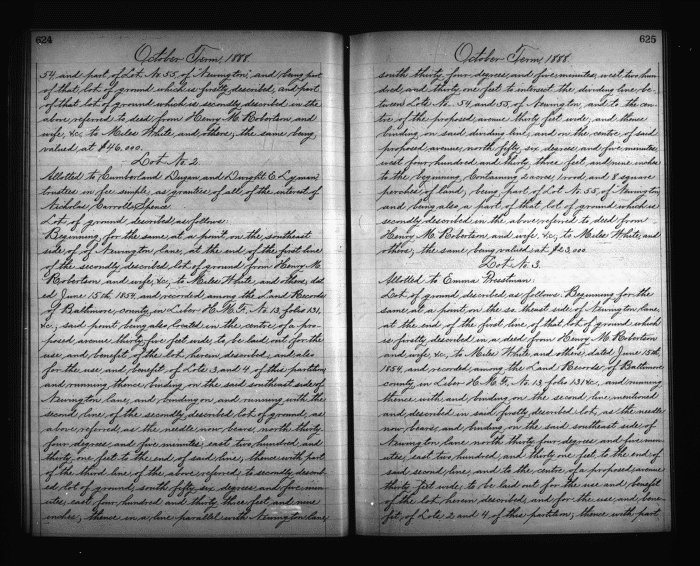 624
October Term, 1888.
54, and part of Lot No 55, of Newington, and being part
of that lot of ground which is firstly described, and part
of that lot of ground which is secondly described in the
above referred to deed from Henry M. Robertson and
wife, &c, to Miles White, and others; the same being
valued, at $46,000.
Lot No 2.
Allotted to Cumberland Dugan, and Dwight C. Lyman
trustees in fee simple, as grantees of all of the interest of
Nicholas Carroll Spence.
Lot of ground described as follows:
Beginning for the same at a point on the southeast
side of of Newington lane, at the end of the first line
of the secondly described lot of ground from Henry M.
Robertson and wife, &c; to Miles White, and others, dat
ed June 15th, 1854, and recorded, among the Land Records
of Baltimore county, in Leber H. M. F. No 13, folio 131,
&c, said point being also located in the centre, of a pro-
posed avenue thirty five feet wide, to be laid out for the
use, and benefit of the lot herein described, and also
for the use, and benefit, of Lots 3, and 4, of this partition
and running thence binding on the said southeast side of
Newington lane, and binding on and running with the
second, line, of the secondly described lot of ground, as
above, referred, as the needle now, bears, north thirty
four degrees, and five minutes, east, two hundred, and
thirty one feet to the end of said line; thence with part
of the third line of the above referred; to secondly describ-
ed lot of ground, south fifty six degrees, and five min-
utes, east, four hundred, and thirty three feet, and nine
inches; thence in a line parallel with Newington lane
625
October Term, 1888.
south thirty four degrees, and five minutes, west two hun-
dred, and thirty one feet to intersect the dividing line, be,
tween Lots No 54, and 55, of Newington, and to the cen-
tre of the proposed avenue thirty feet wide; and thence
binding on said dividing line, and on the centre of said
proposed avenue, north fifty six degrees, and five minutes
west four hundred, and thirty three feet, and nine inches
to the beginning Containing 2 acres, 1 rood, and 8 square
perches of land; being part of Lot No 55, of Newington
and being also, a part of that lot of ground which is
secondly described in the above referred to deed from
Henry M. Robertson, and wife, &c; to Miles White, and
others; the same being valued at $23,000
Lot No 3.
Allotted to Emma Presstman:
Lot of ground described as follows: Beginning for the
same at a point on the so.theast side of Newington lane,
at the end of the first line, of that lot of ground which
is firstly described in a deed from Henry M. Robertson
and wife, &c, to Miles White and others, dated June 15th,
1854, and recorded, among the Land Records of Baltimore
county, in Leber H. M. F. No 13, folio 131 &c, and running
thence with and binding on the second line mentioned
and described in said firstly described lot, as the needle
now, bears, and binding on the said southeast side of
Newington lane north thirty four degrees, and five min-
utes, east, two hundred, and thirty one feet, to the end of
said second line, and to the centre of a proposed avenue
thirty feet wide, to be laid out for the use and benefit
of the lot, herein described, and for the use, and bene-
fit, of Lots 2 and 4 of this partition; thence with part